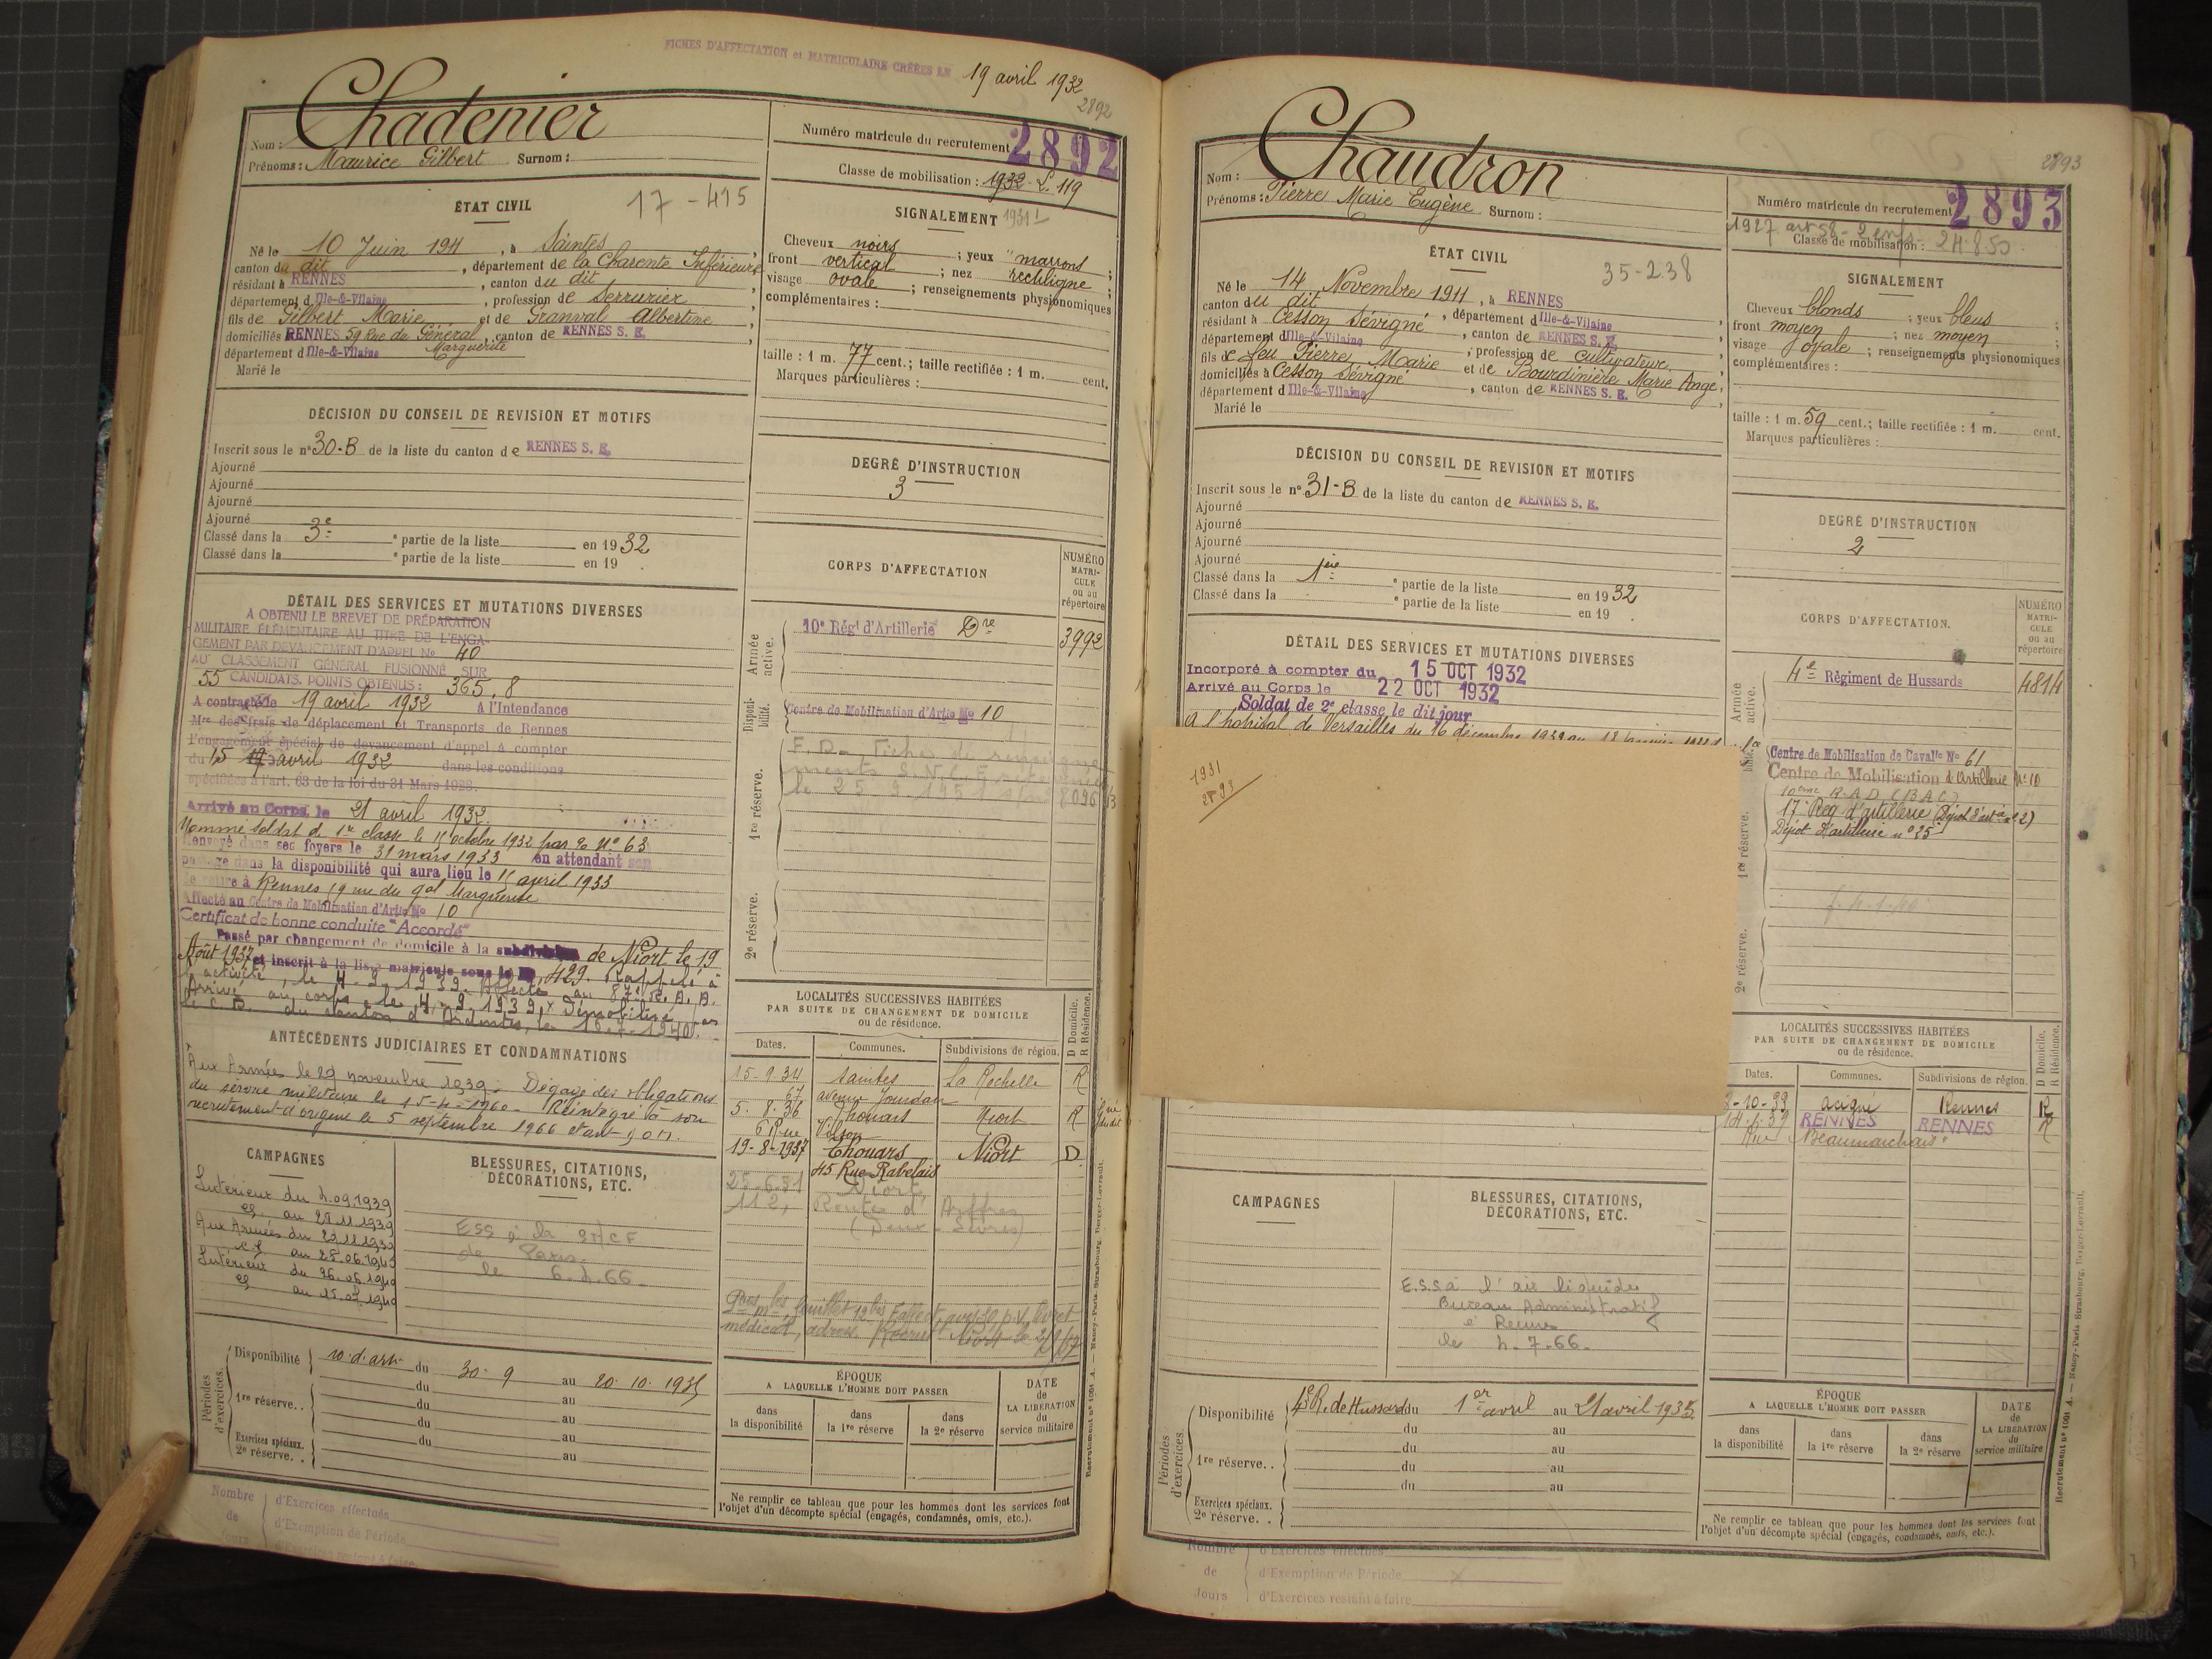 FICHES D'AFFECTATION et MATRICULAIRE CRÉÉES LE 19 avril 1932
2892
Nom : Chadenier
Prénoms : Maurice Gilbert Surnom :
Numéro matricule du recrutement 2892
Classe de mobilisation : 1932 - L. 119
ÉTAT CIVIL
17 - 415
Né le 10 Juin 1911, à Saintes,
canton du dit, département de la Charente Inférieure
résidant à RENNES, canton du dit
département d Ille-&-Vilaine, profession de Serrurier,
fils de Gilbert Marie et de Granval Albertine,
domiciliés RENNES 59 Rue du Général, canton de RENNES S. E.
Marguerite
département d Ille-&-Vilaine
Marié le
SIGNALEMENT 1931
Cheveux noirs ; yeux marrons ;
front vertical ; nez rectiligne ;
visage ovale ; renseignements physionomiques
complémentaires :
taille : 1 m. 77 cent.; taille rectifiée : 1 m. cent.
Marques particulières :
DÉCISION DU CONSEIL DE REVISION ET MOTIFS
Inscrit sous le n° 30-B de la liste du canton de RENNES S. E.
Ajourné
Ajourné
Ajourné
Ajourné
Classé dans la 3e partie de la liste en 1932
Classé dans la e partie de la liste en 19 .
DEGRÉ D'INSTRUCTION
3
DÉTAIL DES SERVICES ET MUTATIONS DIVERSES
A OBTENU LE BREVET DE PRÉPARATION
MILITAIRE ÉLÉMENTAIRE AU TITRE DE L'ENGA-
GEMENT PAR DEVANCEMENT D'APPEL No 40
AU CLASSEMENT GÉNÉRAL FUSIONNÉ SUR
55 CANDIDATS. POINTS OBTENUS : 365,8
A contracté le 19 avril 1932 à l'Intendance
Mre des frais de déplacement et Transports de Rennes
l'engagement spécial de devancement d'appel à compter
du 15 avril 1932 dans les conditions
spécifiées à l'art. 63 de la loi du 31 Mars 1928.
Arrivé au Corps le 21 avril 1932.
Nommé soldat de 1re classe le 15 octobre 1932 par No 63
Renvoyé dans ses foyers le 31 mars 1933 en attendant son
passage dans la disponibilité qui aura lieu le 15 avril 1933
Se retire à Rennes 59 rue du gal Marguerite
Affecté au Centre de Mobilisation d'Artie No 10
Certificat de bonne conduite "Accordé"
Passé par changement de domicile à la subdivision de Niort le 19
Août 1937 et inscrit à la liste matricule sous le No 429. Rappelé à
l'activité, le 4-9-1939. Affecté au 87e R.A.A.
Arrivé au corps le 4-9-1939. Démobilisé par
le C.D. du canton d'Ardentes, le 15-7-1940.
CORPS D'AFFECTATION
NUMÉRO MATRI-CULE ou au répertoire
Armée active.
10e Régt d'Artillerie Dre 3992
Disponi-bilité.
Centre de Mobilisation d'Artie No 10
1re réserve.
2e réserve.
ANTÉCÉDENTS JUDICIAIRES ET CONDAMNATIONS
Aux Armées le 29 novembre 1939. Dégagé des obligations
du service militaire le 15-4-1960. Réintégré à son
recrutement d'origine le 5 septembre 1966
LOCALITÉS SUCCESSIVES HABITÉES
PAR SUITE DE CHANGEMENT DE DOMICILE
ou de résidence.
D Domicile.
R Résidence.
Dates. Communes. Subdivisions de région.
15-9-34 Saintes La Rochelle R
67 avenue Jourdan
5. 8. 36 Thouars Niort R
6 Rue Wilson
19-8-1937 Thouars Niort D
45 Rue Rabelais
25-6-51 Niort,
112, Route d'Aiffres
(Deux-Sèvres)
CAMPAGNES
Intérieur du 4.09.1939
au 28.11.1939
Aux Armées du 29.11.1939
au 25.06.1940
Intérieur du 26.06.1940
au 15.07.1940
BLESSURES, CITATIONS,
DÉCORATIONS, ETC.
ESS à la SNCF
de Paris.
le 6.4.66.
Périodes d'exercices.
Disponibilité 10. d'art. du 30. 9 au 20. 10. 1935
du au
1re réserve. . du au
du au
Exercices spéciaux. du au
2e réserve. . au
ÉPOQUE
A LAQUELLE L'HOMME DOIT PASSER
dans la disponibilité
dans la 1re réserve
dans la 2e réserve
DATE de LA LIBÉRATION du service militaire
Ne remplir ce tableau que pour les hommes dont les services font
l'objet d'un décompte spécial (engagés, condamnés, omis, etc.).
Recrutement n° 1001 A. — Nancy-Paris-Strasbourg, Berger-Levrault.
Nombre de Jours
d'Exercices effectués
d'Exemption de Période
d'Exercices restant à faire
2893
Nom : Chaudron
Prénoms : Pierre Marie Eugène Surnom :
Numéro matricule du recrutement 2893
1927 art 58 - 2 enfs
Classe de mobilisation : 24.850
ÉTAT CIVIL
35-238
Né le 14 Novembre 1911, à RENNES
canton du dit, département d Ille-&-Vilaine
résidant à Cesson Sévigné, canton de RENNES S. E.
département d Ille-&-Vilaine ; profession de cultivateur
fils de feu Pierre Marie et de Bourdinière Marie Ange,
domiciliés à Cesson Sévigné, canton de RENNES S. E.
département d Ille-&-Vilaine
Marié le
SIGNALEMENT
Cheveux blonds ; yeux bleus
front moyen ; nez moyen
visage ovale ; renseignements physionomiques
complémentaires :
taille : 1 m. 59 cent.; taille rectifiée : 1 m. cent.
Marques particulières :
DÉCISION DU CONSEIL DE REVISION ET MOTIFS
Inscrit sous le n° 31-B de la liste du canton de RENNES S. E.
Ajourné
Ajourné
Ajourné
Ajourné
Classé dans la 1ère partie de la liste en 1932
Classé dans la e partie de la liste en 19 .
DEGRÉ D'INSTRUCTION
2
DÉTAIL DES SERVICES ET MUTATIONS DIVERSES
Incorporé à compter du 15 OCT 1932
Arrivé au Corps le 22 OCT 1932
Soldat de 2e classe le dit jour
A l'hôpital de Versailles du 16 décembre 1932 au
1931
2893
CORPS D'AFFECTATION.
NUMÉRO MATRI-CULE ou au répertoire
Armée active.
4e Régiment de Hussards 4814
Centre de Mobilisation de Cavalie No 61
Centre de Mobilisation d'Artillerie No 10
10eme R.A.D (BAC)
17e Reg d'artillerie (Dépôt d'artie n° 2)
Dépôt d'artillerie n° 25
1re réserve.
2e réserve.
LOCALITÉS SUCCESSIVES HABITÉES
PAR SUITE DE CHANGEMENT DE DOMICILE
ou de résidence.
D Domicile.
R Résidence.
Dates. Communes. Subdivisions de région.
Acigné Rennes R
RENNES RENNES R
Rue Beaumarchais
CAMPAGNES
BLESSURES, CITATIONS,
DÉCORATIONS, ETC.
E.S.S à l'air liquide
Bureau Administratif
à Rennes
le 4-7-66.
Périodes d'exercices.
Disponibilité 4e R. de Hussards du 1er avril au 21 avril 1935.
du au
1re réserve. . du au
du au
du au
Exercices spéciaux.
2e réserve. .
ÉPOQUE
A LAQUELLE L'HOMME DOIT PASSER
dans la disponibilité
dans la 1re réserve
dans la 2e réserve
DATE de LA LIBÉRATION du service militaire
Ne remplir ce tableau que pour les hommes dont les services font
l'objet d'un décompte spécial (engagés, condamnés, omis, etc.).
Recrutement n° 1001 A. — Nancy-Paris-Strasbourg, Berger-Levrault.
Nombre de Jours
d'Exercices effectués
d'Exemption de Période
d'Exercices restant à faire